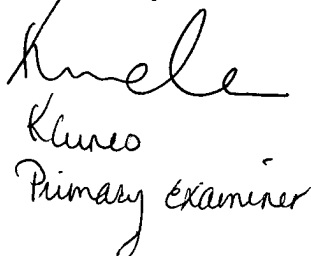 KCuneo
Primary Examiner